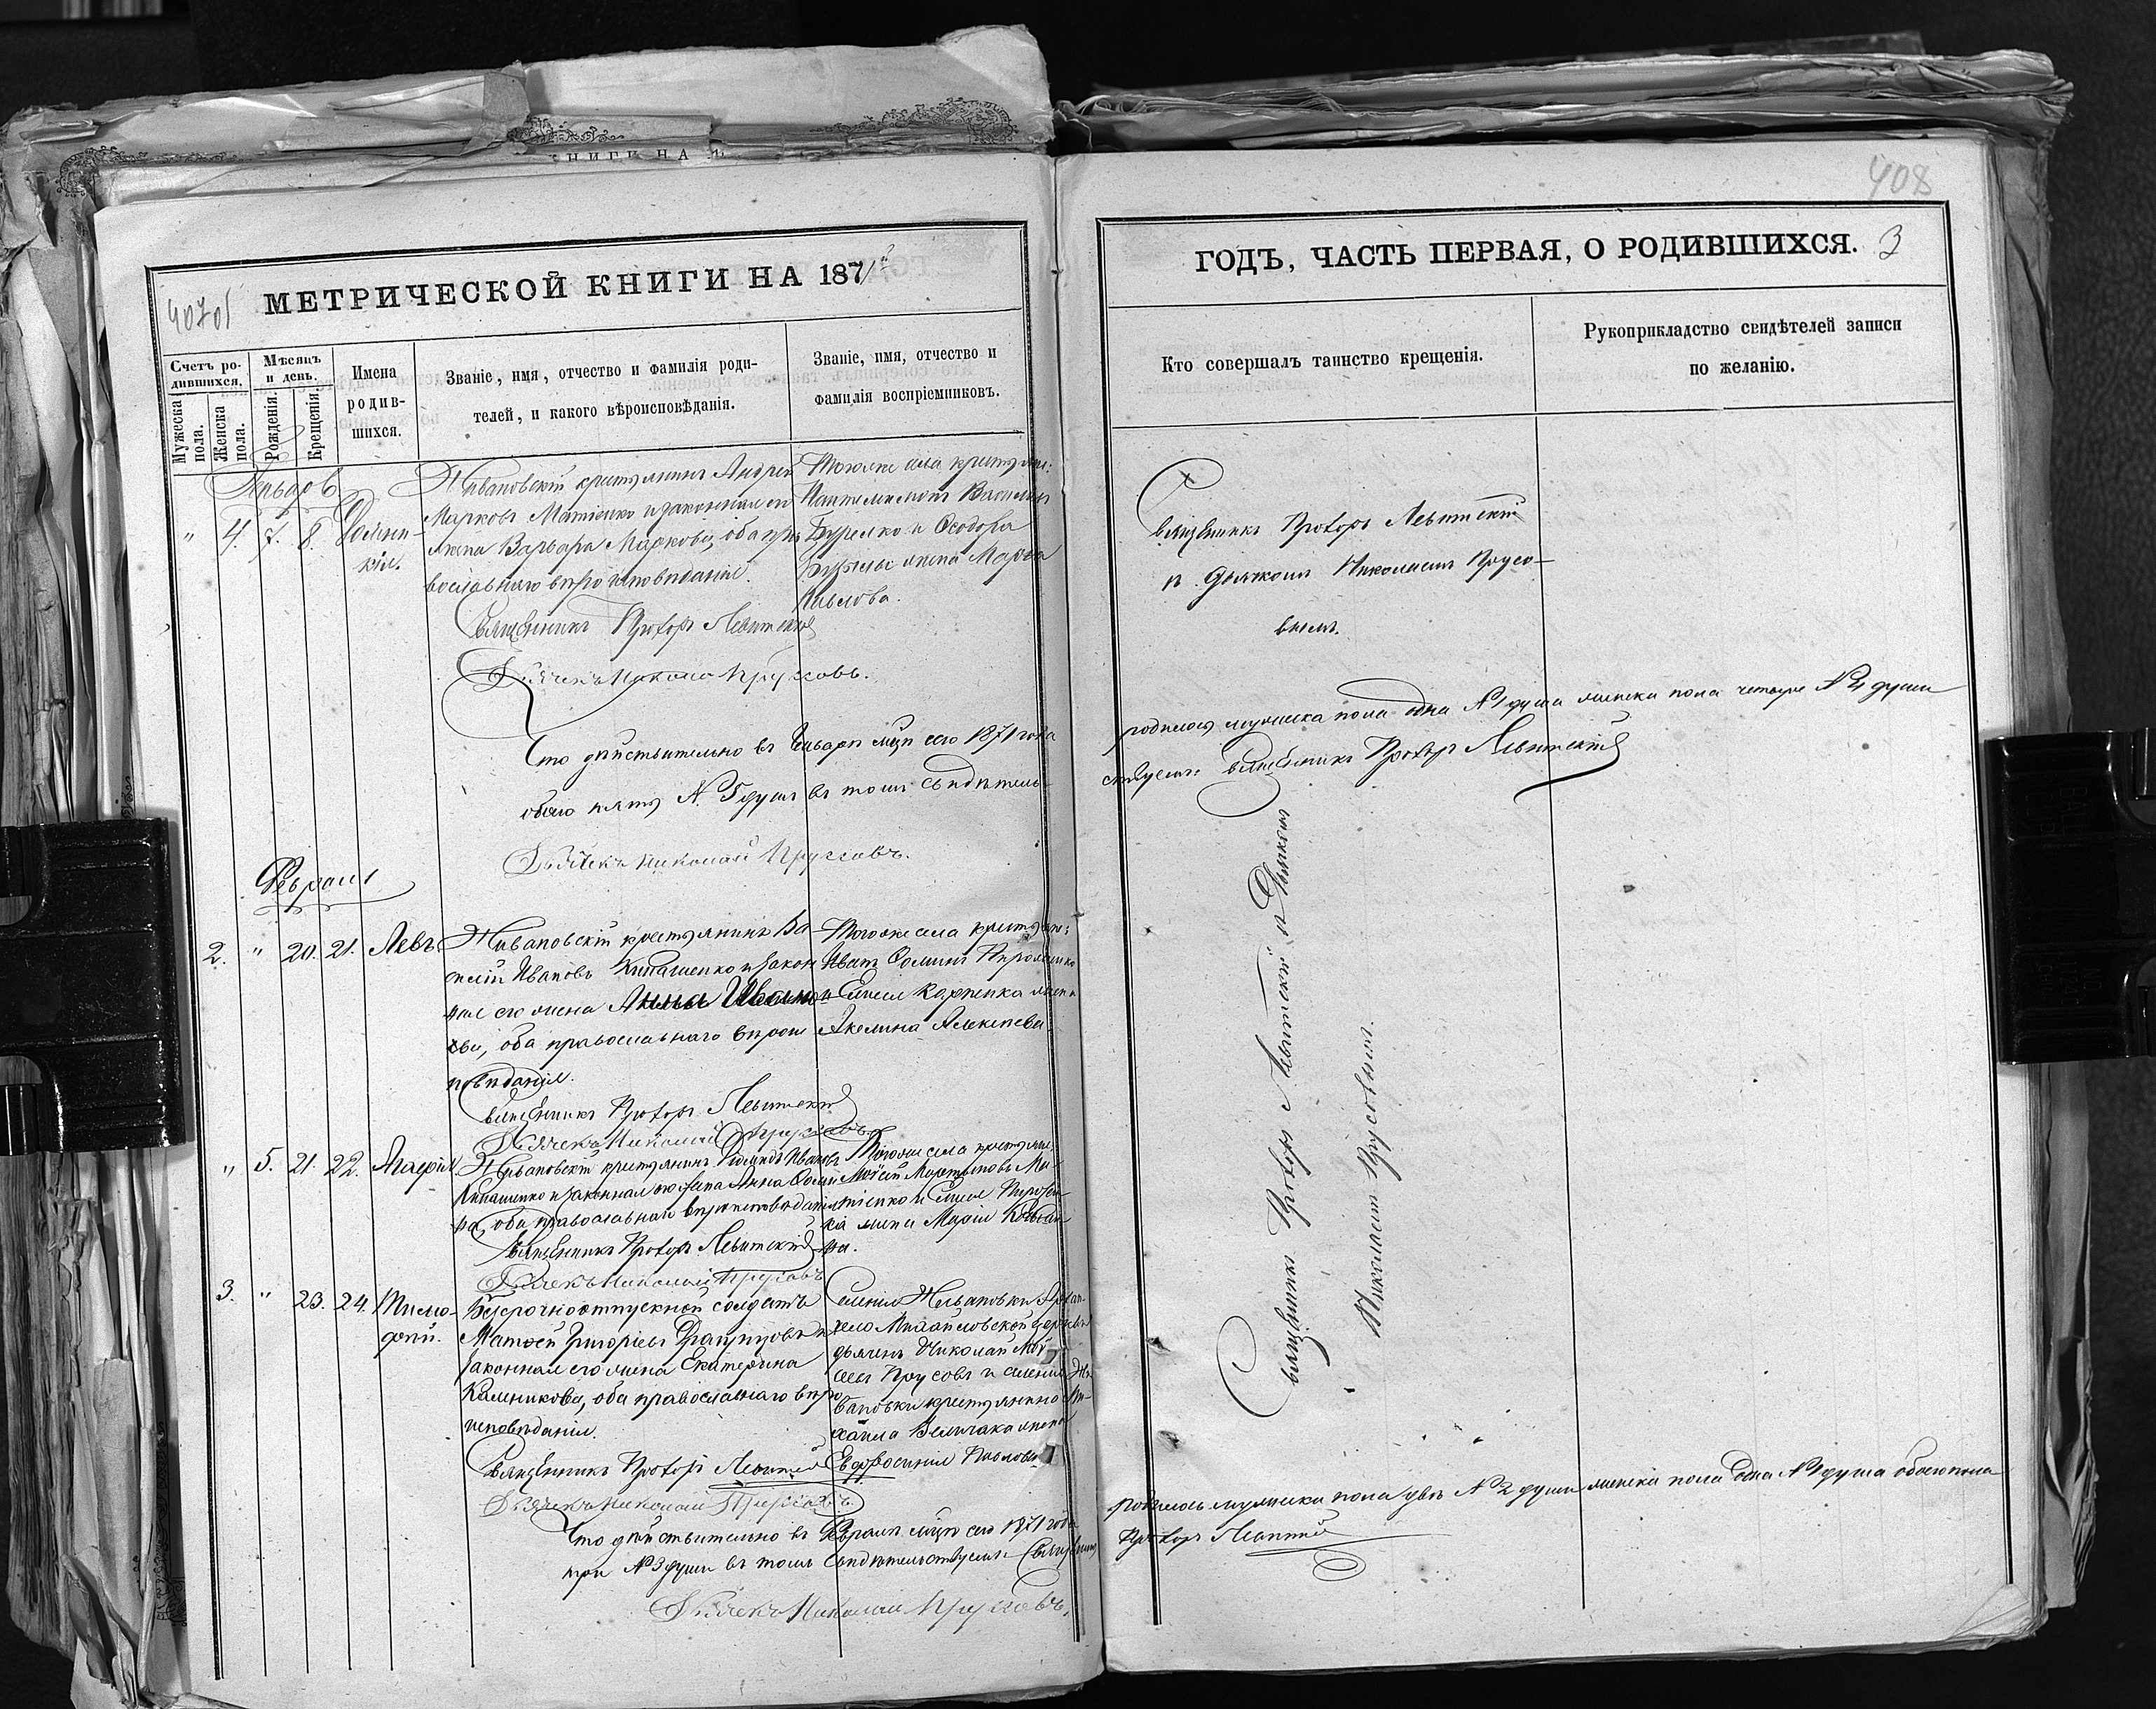 КНИГИ НА 1
407 об
МЕТРИЧЕСКОЙ КНИГИ НА 1871й
Счетъ ро-
дившихся.
Мѣсяцъ
и день.
Мужеска пола.
Женска пола.
Рожденія.
Крещенія.
Имена
родив-
шихся.
Званіе, имя, отчество и фамилія роди-
телей, и какого вѣроисповѣданія.
Званіе, имя, отчество и
фамилія воспріемниковъ.
Январь
" 4. 7. 8.
Домни-
кія.
крестьянинъ Андрей
Марковъ Матіенко и законная его
жена Варвара Маркова, оба пра
вославнаго вѣроисповѣданія.
Священникъ Прохоръ Левитскій
Дьячекъ Николай Прусовъ.
Тогоже села крестьян:
Пантелеимонъ Васильевъ
и Ѳеодора
жена Марѳа
Павлова.
Что дѣйствительно въ Январѣ мцѣ сего 1871 года
обоего пять № 5 душъ въ томъ свидѣтель-
Дьячекъ Николай Прусовъ.
Февраль
2. " 20. 21. Левъ
крестьянинъ Ва-
силій Ивановъ Кипашенко и закон
ная его жена Анна Иванно
ва, оба православнаго вѣроис
повѣданія.
Священникъ Прохоръ Левитскій
Дьячекъ Николай Прусовъ.
Тогоже села крестьян:
Иванъ Ѳоминъ
и Емель Карпенка жена
Акелина Алексѣева
" 5. 21. 22. Агафія
крестьянинъ Ивановъ
Кипашенко и законная его жена Анна Ѳоми
на, оба православнаго вѣроисповѣданія
Священникъ Прохоръ Левитскій
Дьячекъ Николай Прусовъ
Тогоже села крестьян:
Моѵсей Мартыновъ Ма-
тіенко и
жена Марія
на.
3. " 23. 24. Тимо-
фей.
Безсрочноотпускной солдатъ
Матѳей Григорьевъ и
законная его жена Екатерина
оба православнаго вѣро
исповѣданія.
Священникъ Прохоръ Левитскій
Дьячекъ Николай Прусовъ
Селенія Архан-
гело Михайловской церкви
дьячекъ Николай Мой
сеевъ Прусовъ и селенія
крестьянина Ми-
хаила Величака жена
Евфросинія Павлова
Что дѣйствительно въ Февралѣ мцѣ сего 1871 года
три № 3 души въ томъ свидѣтельствуемъ: Священникъ
Дьячекъ Николай Прусовъ.
408
ГОДЪ, ЧАСТЬ ПЕРВАЯ, О РОДИВШИХСЯ. 3
Кто совершалъ таинство крещенія.
Рукоприкладство свидѣтелей записи
по желанію.
Священникъ Прохоръ Левитскій
и Дьячкомъ Николаемъ Прусо-
вымъ.
родилось мужеска пола одна № 1 душа женска пола четыре № 4 души
ствуемъ: Священникъ Прохоръ Левитскій
Священникъ Прохоръ Левитскій и Дьячкомъ
Николаемъ Прусовымъ.
родилось мужеска пола двѣ № 2 души женска пола одна № 1 душа обоего пола
Прохоръ Левитскій